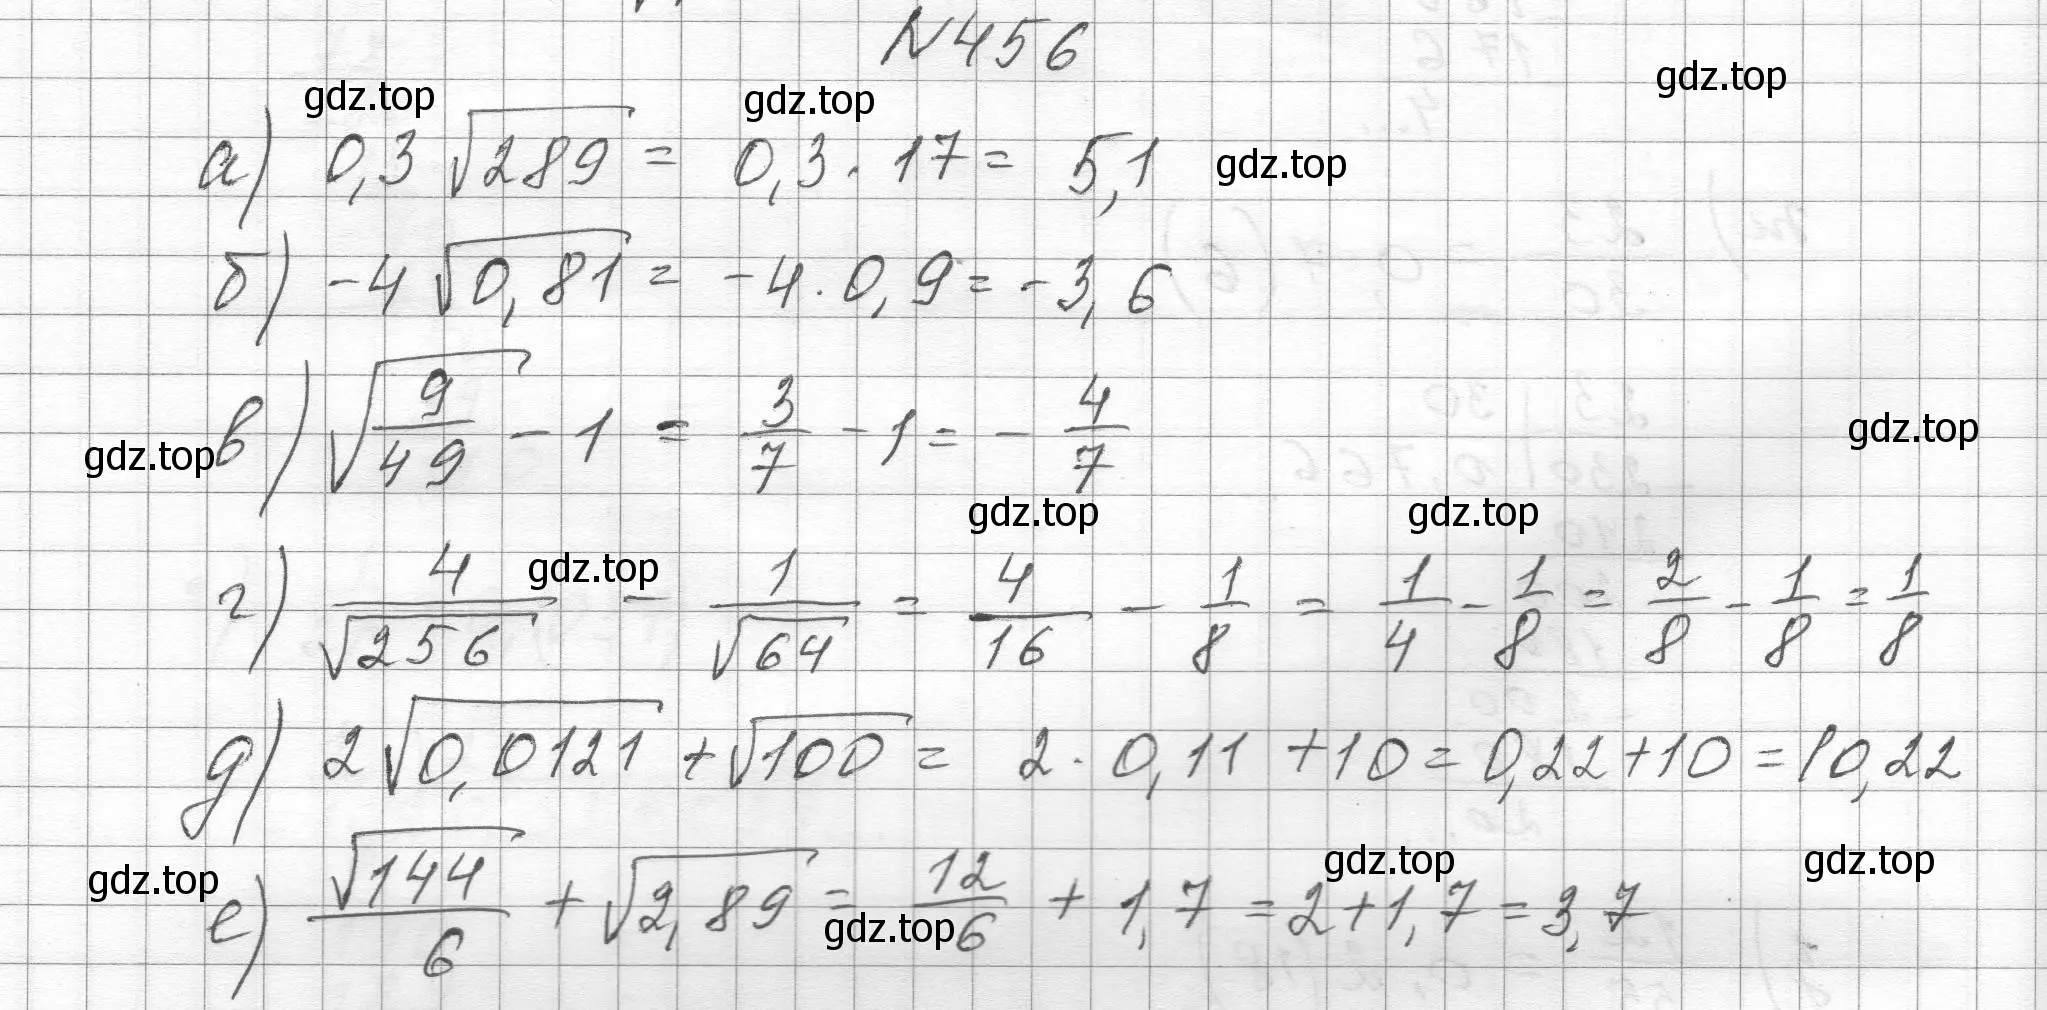 N456
gdz.top gdz.top gdz.top
а) 0,3 √289 = 0,3 · 17 = 5,1 gdz.top
б) -4 √0,81 = -4 · 0,9 = -3,6
в) √(9/49) - 1 = 3/7 - 1 = - 4/7
gdz.top gdz.top
gdz.top gdz.top
г) 4/√256 - 1/√64 = 4/16 - 1/8 = 1/4 - 1/8 = 2/8 - 1/8 = 1/8
gdz.top
д) 2√0,0121 + √100 = 2 · 0,11 + 10 = 0,22 + 10 = 10,22
gdz.top gdz.top gdz.top
е) √144/6 + √2,89 = 12/6 + 1,7 = 2 + 1,7 = 3,7
gdz.top